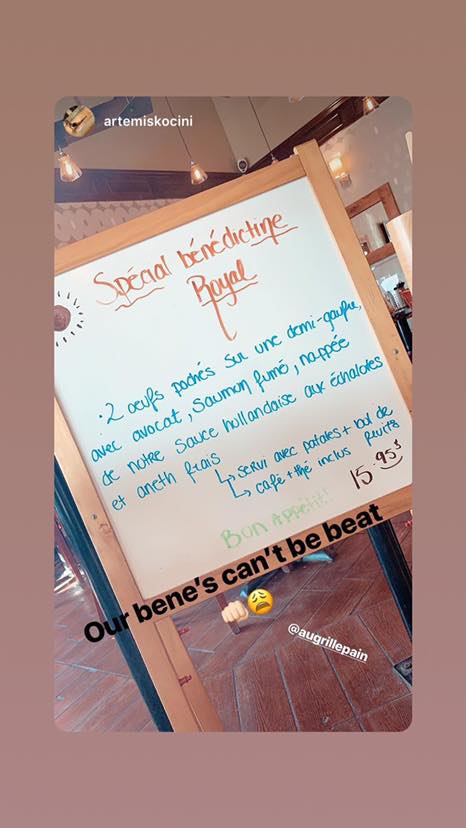 artemiskocini
Spécial bénédictine
Royal
• 2 oeufs pochés sur une demi-gaufre,
avec avocat, saumon fumé, nappée
de notre sauce hollandaise aux échalotes
et aneth frais
↳ servi avec patates + bol de fruits
↳ café + thé inclus
15.95$
Bon Appétit!!
Our bene's can't be beat
👊🏻😩
@augrillepain